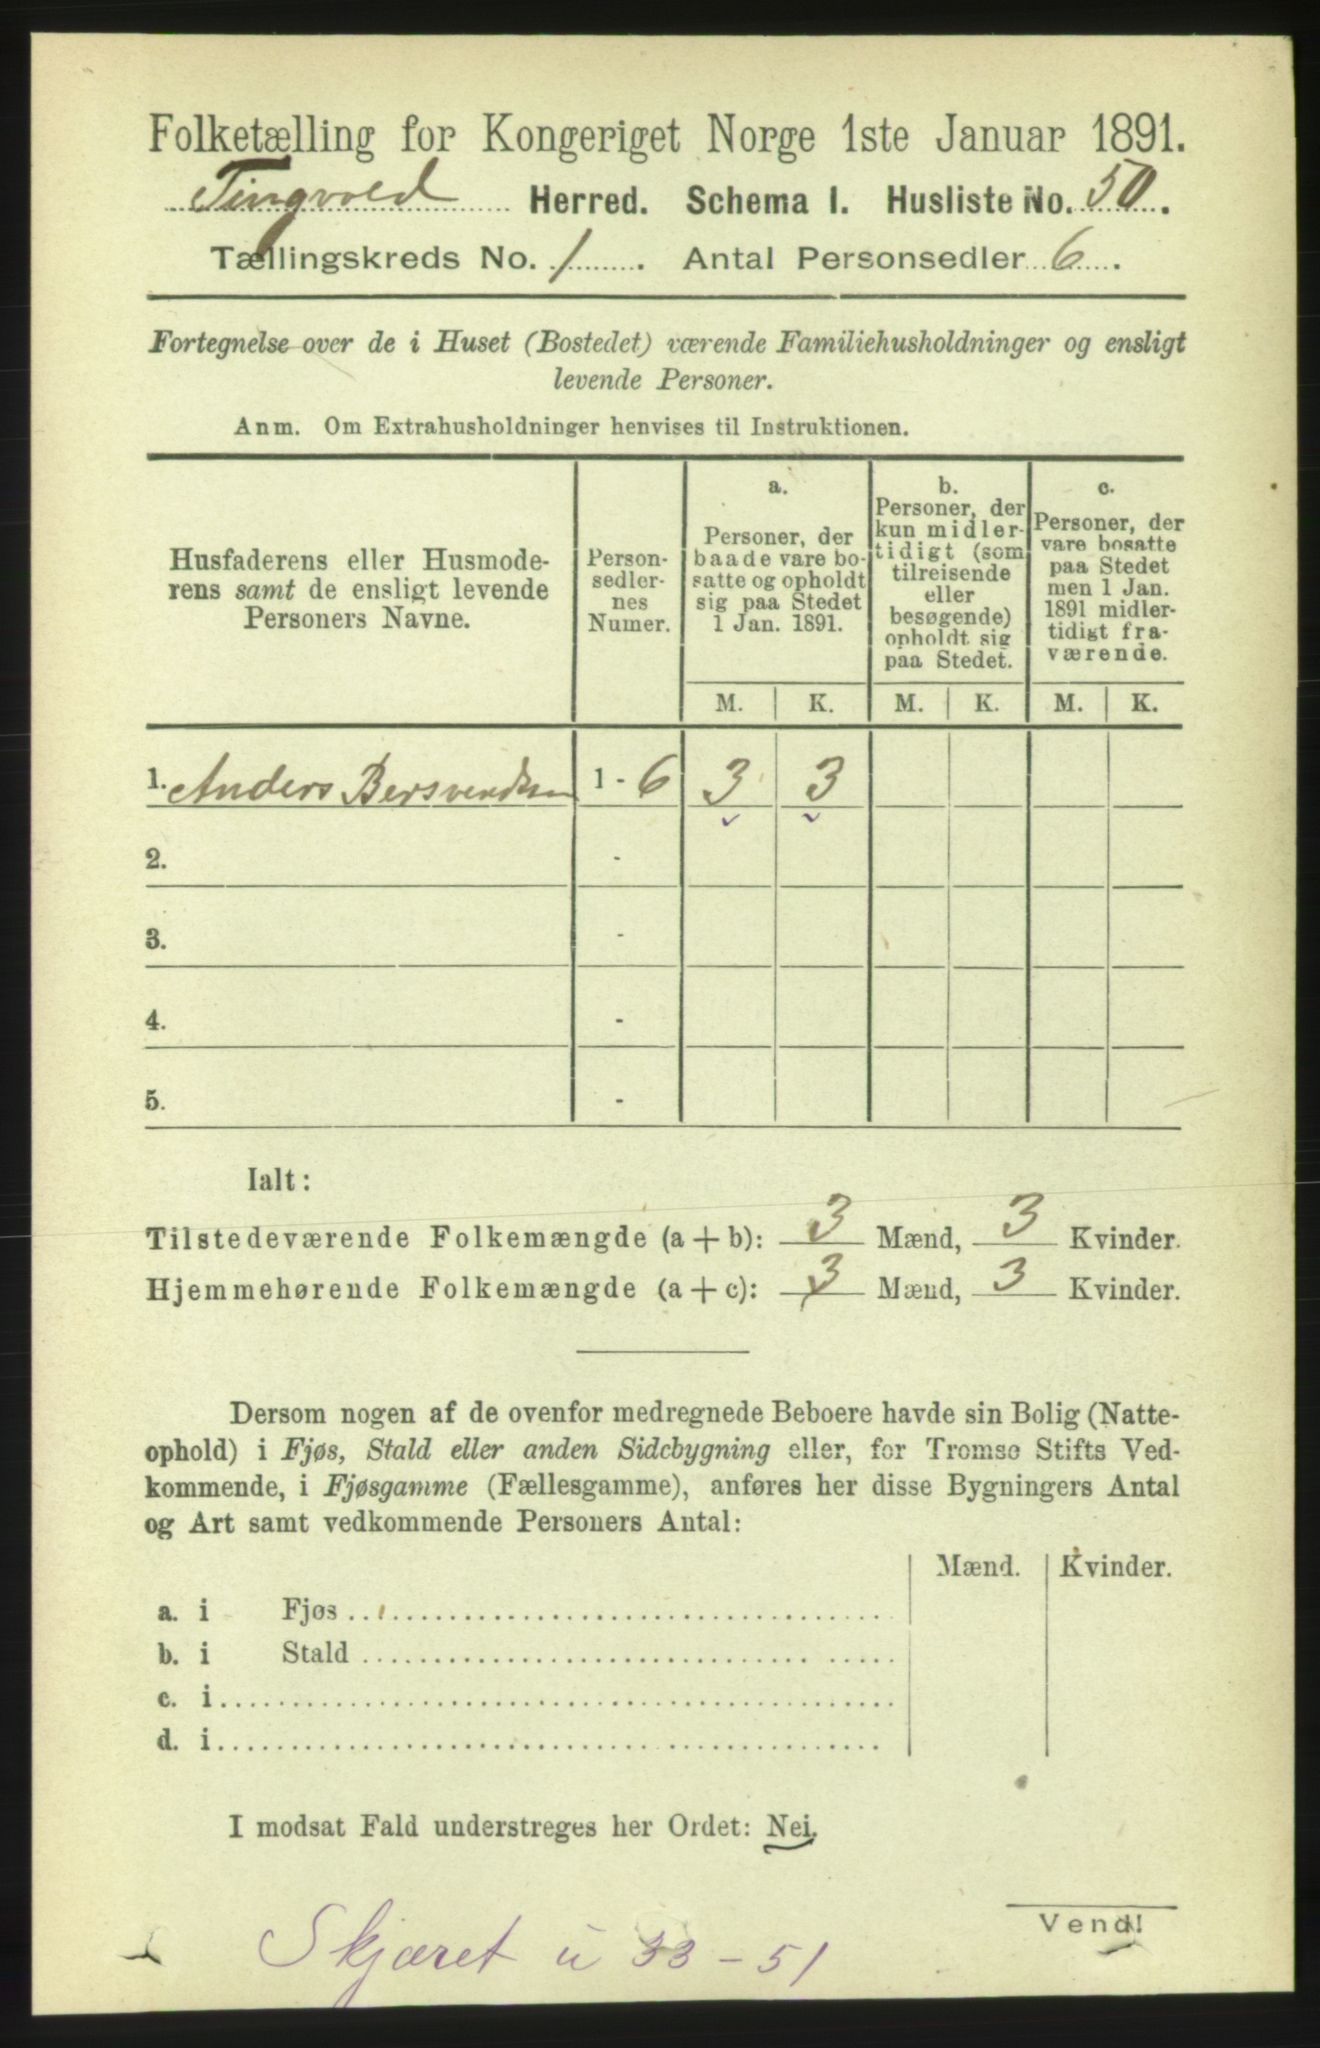 Folketælling for Kongeriget Norge 1ste Januar 1891.
Tingvold Herred. Schema I. Husliste No. 50.
Tællingskreds No. 1. Antal Personsedler 6.
Fortegnelse over de i Huset (Bostedet) værende Familiehusholdninger og ensligt
levende Personer.
Anm. Om Extrahusholdninger henvises til Instruktionen.
Husfaderens eller Husmode-
rens samt de ensligt levende
Personers Navne.
Person-
sedler-
nes
Numer.
a.
Personer, der
baade vare bo-
satte og opholdt
sig paa Stedet
1 Jan. 1891.
b.
Personer, der
kun midler-
tidigt (som
tilreisende
eller
besøgende)
opholdt sig
paa Stedet.
c.
Personer, der
vare bosatte
paa Stedet
men 1 Jan.
1891 midler-
tidigt fra-
værende.
M. K. M. K. M. K.
1. Anders Bersvendsen 1 - 6 3 3
2. -
3. -
4. -
5. -
Ialt:
Tilstedeværende Folkemængde (a + b): 3 Mænd, 3 Kvinder.
Hjemmehørende Folkemængde (a + c): 3 Mænd, 3 Kvinder.
Dersom nogen af de ovenfor medregnede Beboere havde sin Bolig (Natte-
ophold) i Fjøs, Stald eller anden Sidebygning eller, for Tromsø Stifts Ved-
kommende, i Fjøsgamme (Fællesgamme), anføres her disse Bygningers Antal
og Art samt vedkommende Personers Antal:
Mænd. Kvinder.
a. i Fjøs
b. i Stald
c. i
d. i
I modsat Fald understreges her Ordet: Nei.
Vend!
Skjæret u 33 - 51